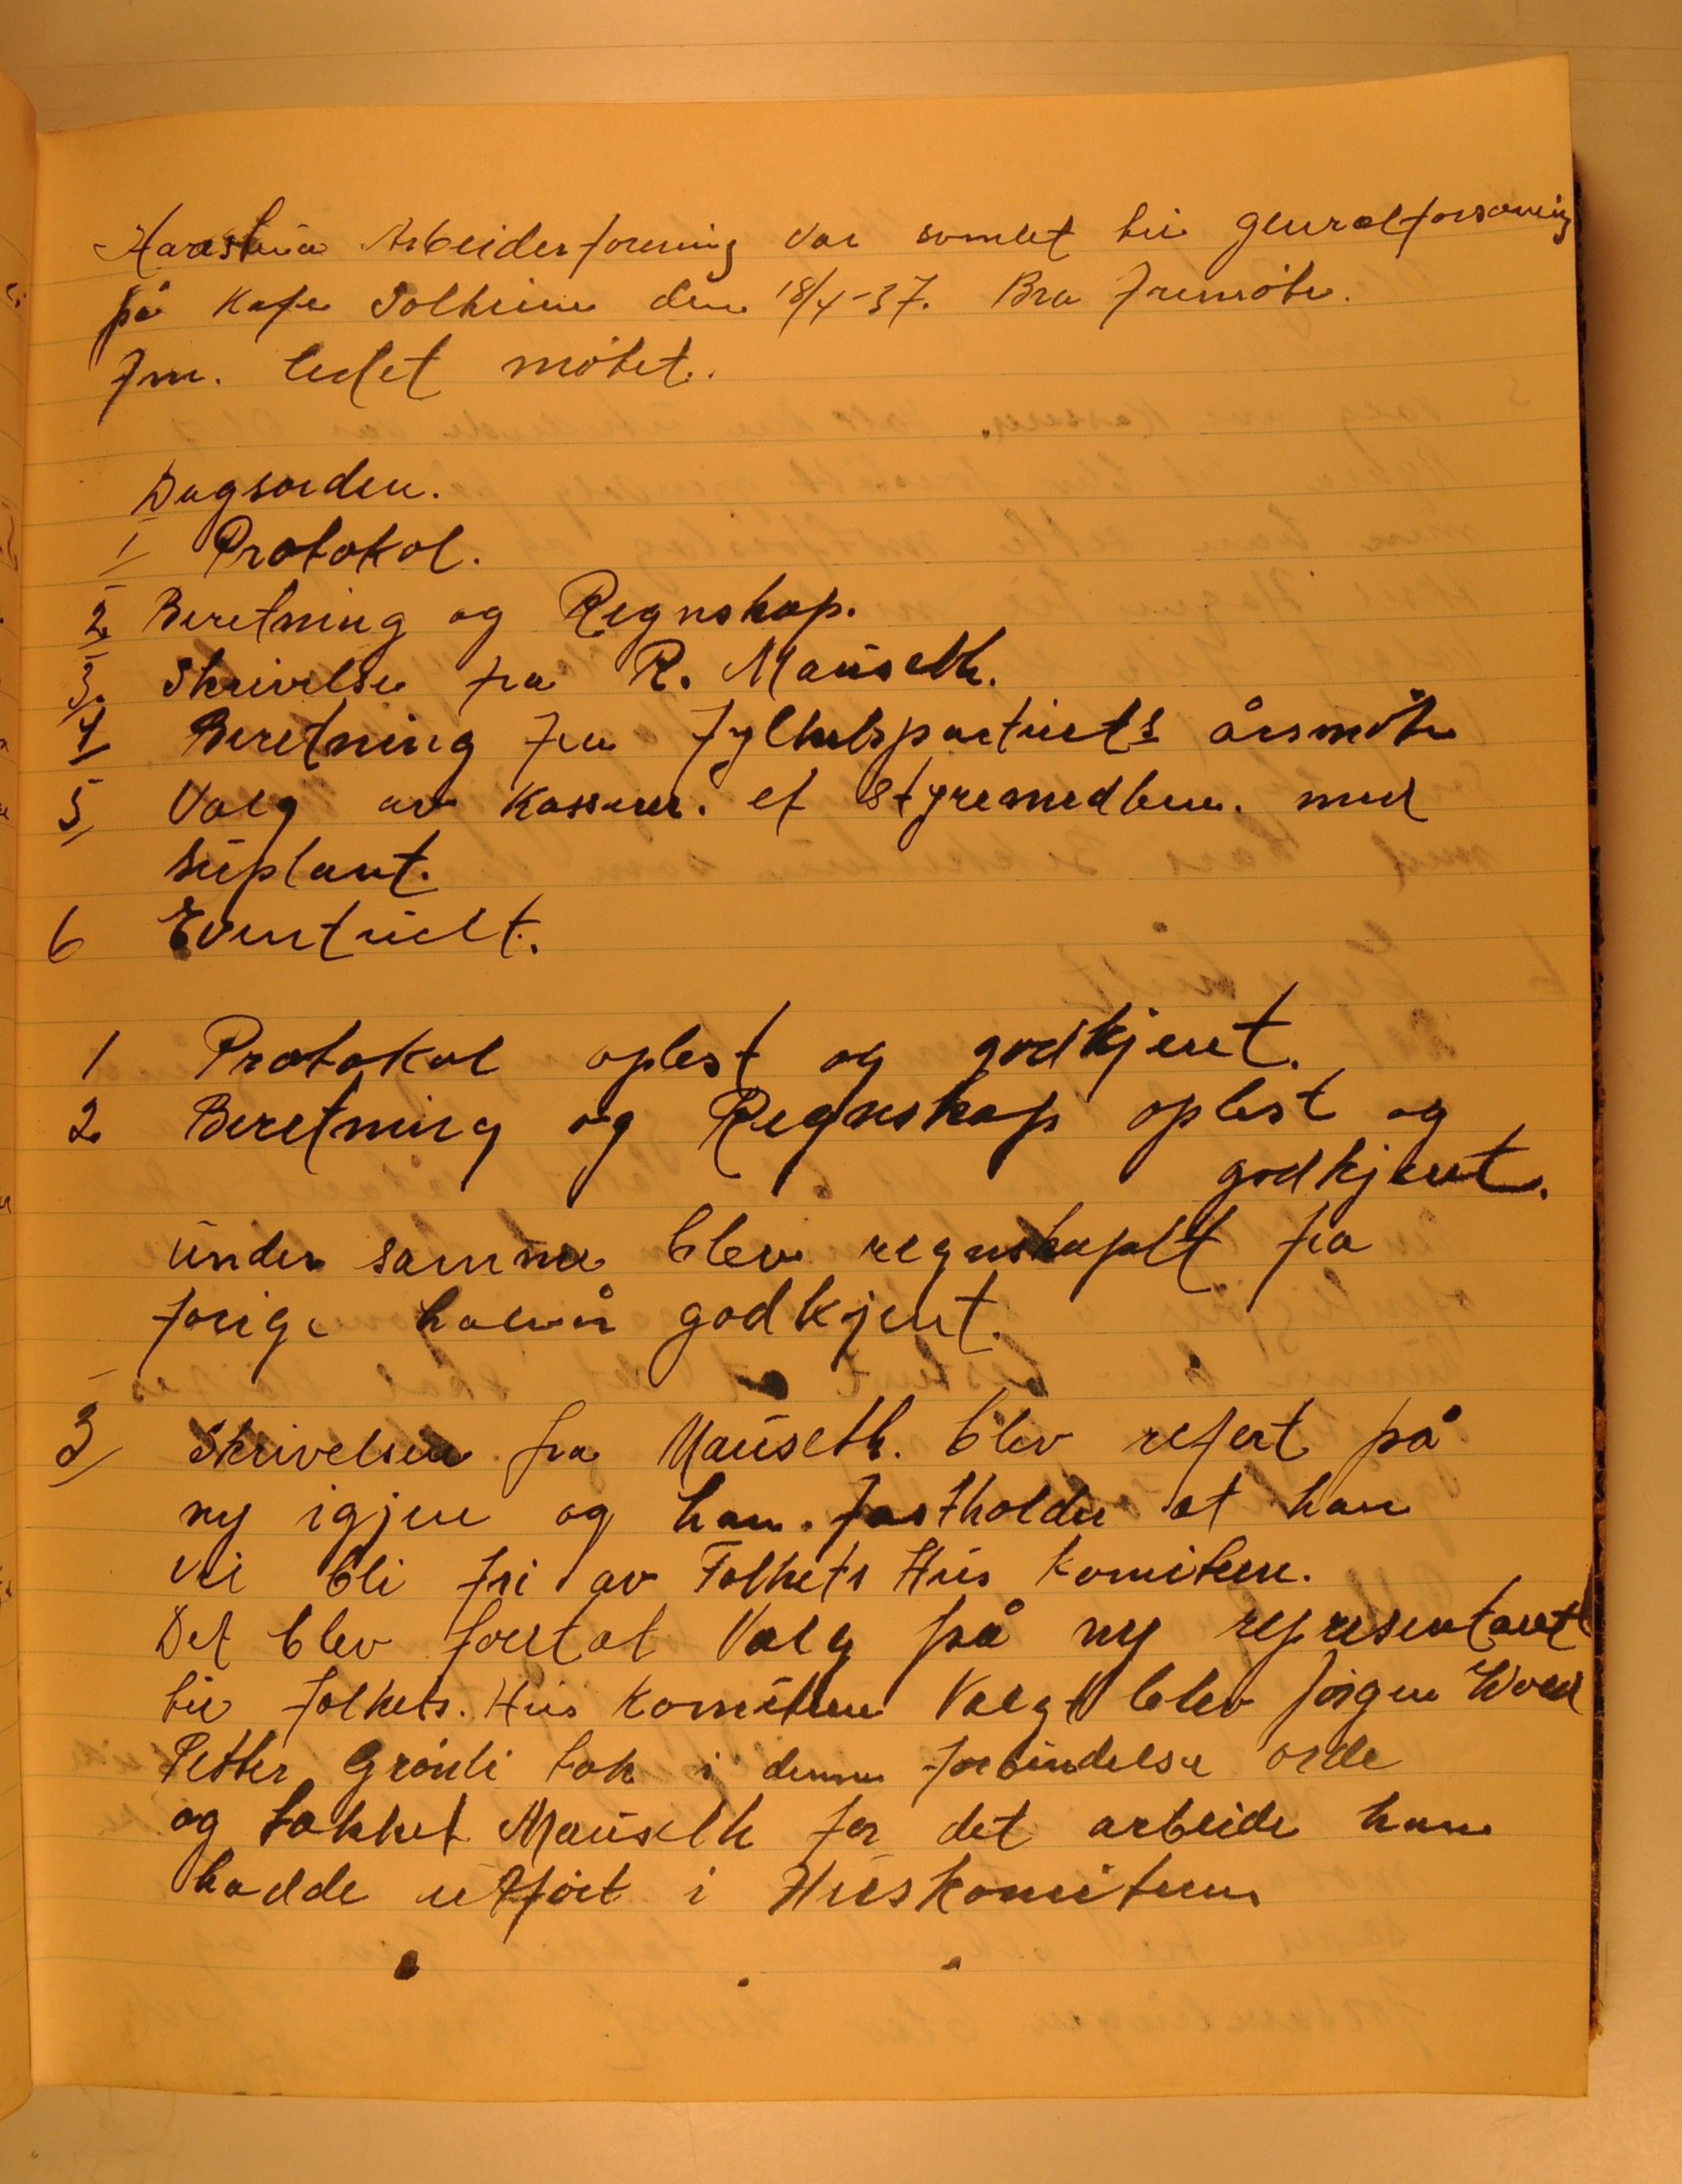 Arbeiderforening var samlet til generalforsamling
på Kafe Solheim den 18/4-37. Bra fremöte.
Fm. ledet mötet.
Dagsorden.
1/ Protokol.
2/ Beretning og Regnskap.
3/. Skrivelse fra R. Mauseth.
4/ Beretning fra Fylkespartiets årsmöte
5/ Valg av Kasserer. et styremedlem. med
suplant.
6 Eventuelt.
1 Protokol oplest og godkjent.
2 Beretning og Regnskap oplest og
godkjent.
under samme blev regnskaplt fra
forige halvår godkjent.
3/ Skrivelsen fra Mauseth. blev refert på
ny igjen og han. fastholder at han
vil bli fri av Folkets Hus komiteen.
Det blev foretat Valg på ny representant
til folkets. Hus Komiteen Valgt blev Jörgen
Petter Grönli tok i denne forbindelse orde
og takket Mauseth for det arbeide han
hadde utfört i Huskomiteen